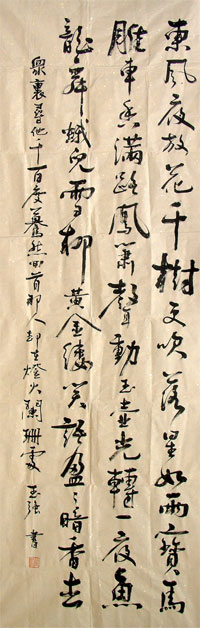 東風夜放花千樹更吹落星如雨寶馬
雕車香滿路鳳簫聲動玉壺光轉一夜魚
龍舞蛾兒雪柳黃金縷笑語盈盈暗香去
眾裏尋他千百度驀然回首那人卻在燈火闌珊處 玉強書